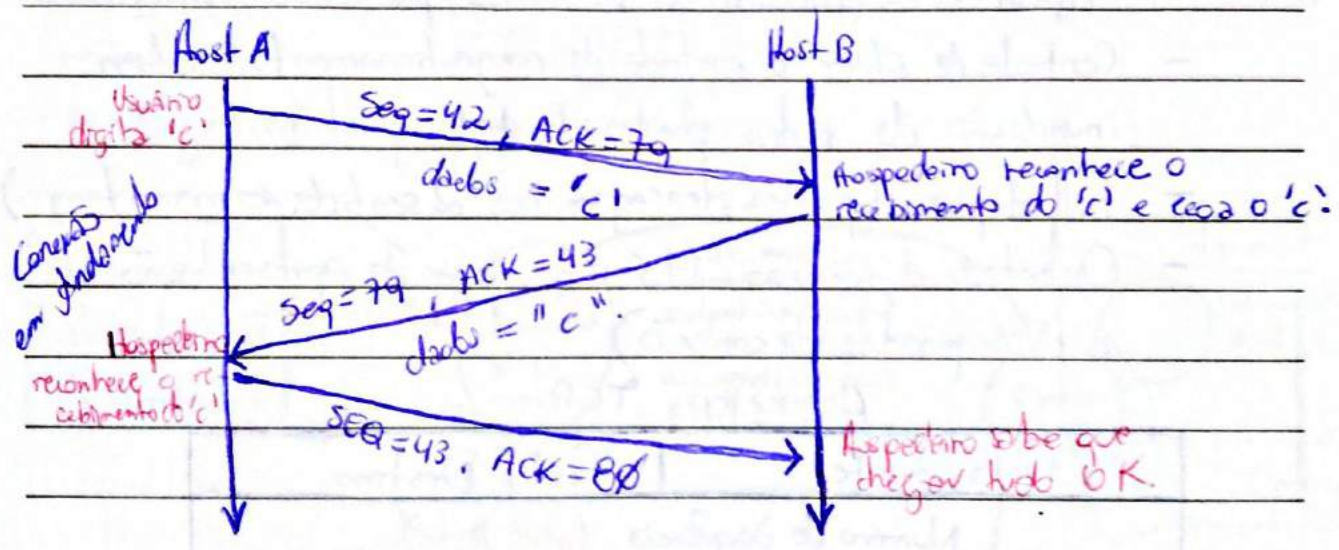 Host A
Host B
Usuário
digita 'c'
Seq=42, ACK=79
dados = 'c'
Hospedeiro reconhece o
recebimento do 'c' e ecoa o 'c'.
Conexão
em Andamento
Seq=79, ACK=43
dados = "c".
Hospedeiro
reconhece o re-
cebimento do 'c'
SEQ=43. ACK=80
Hospedeiro sabe que
chegou tudo OK.